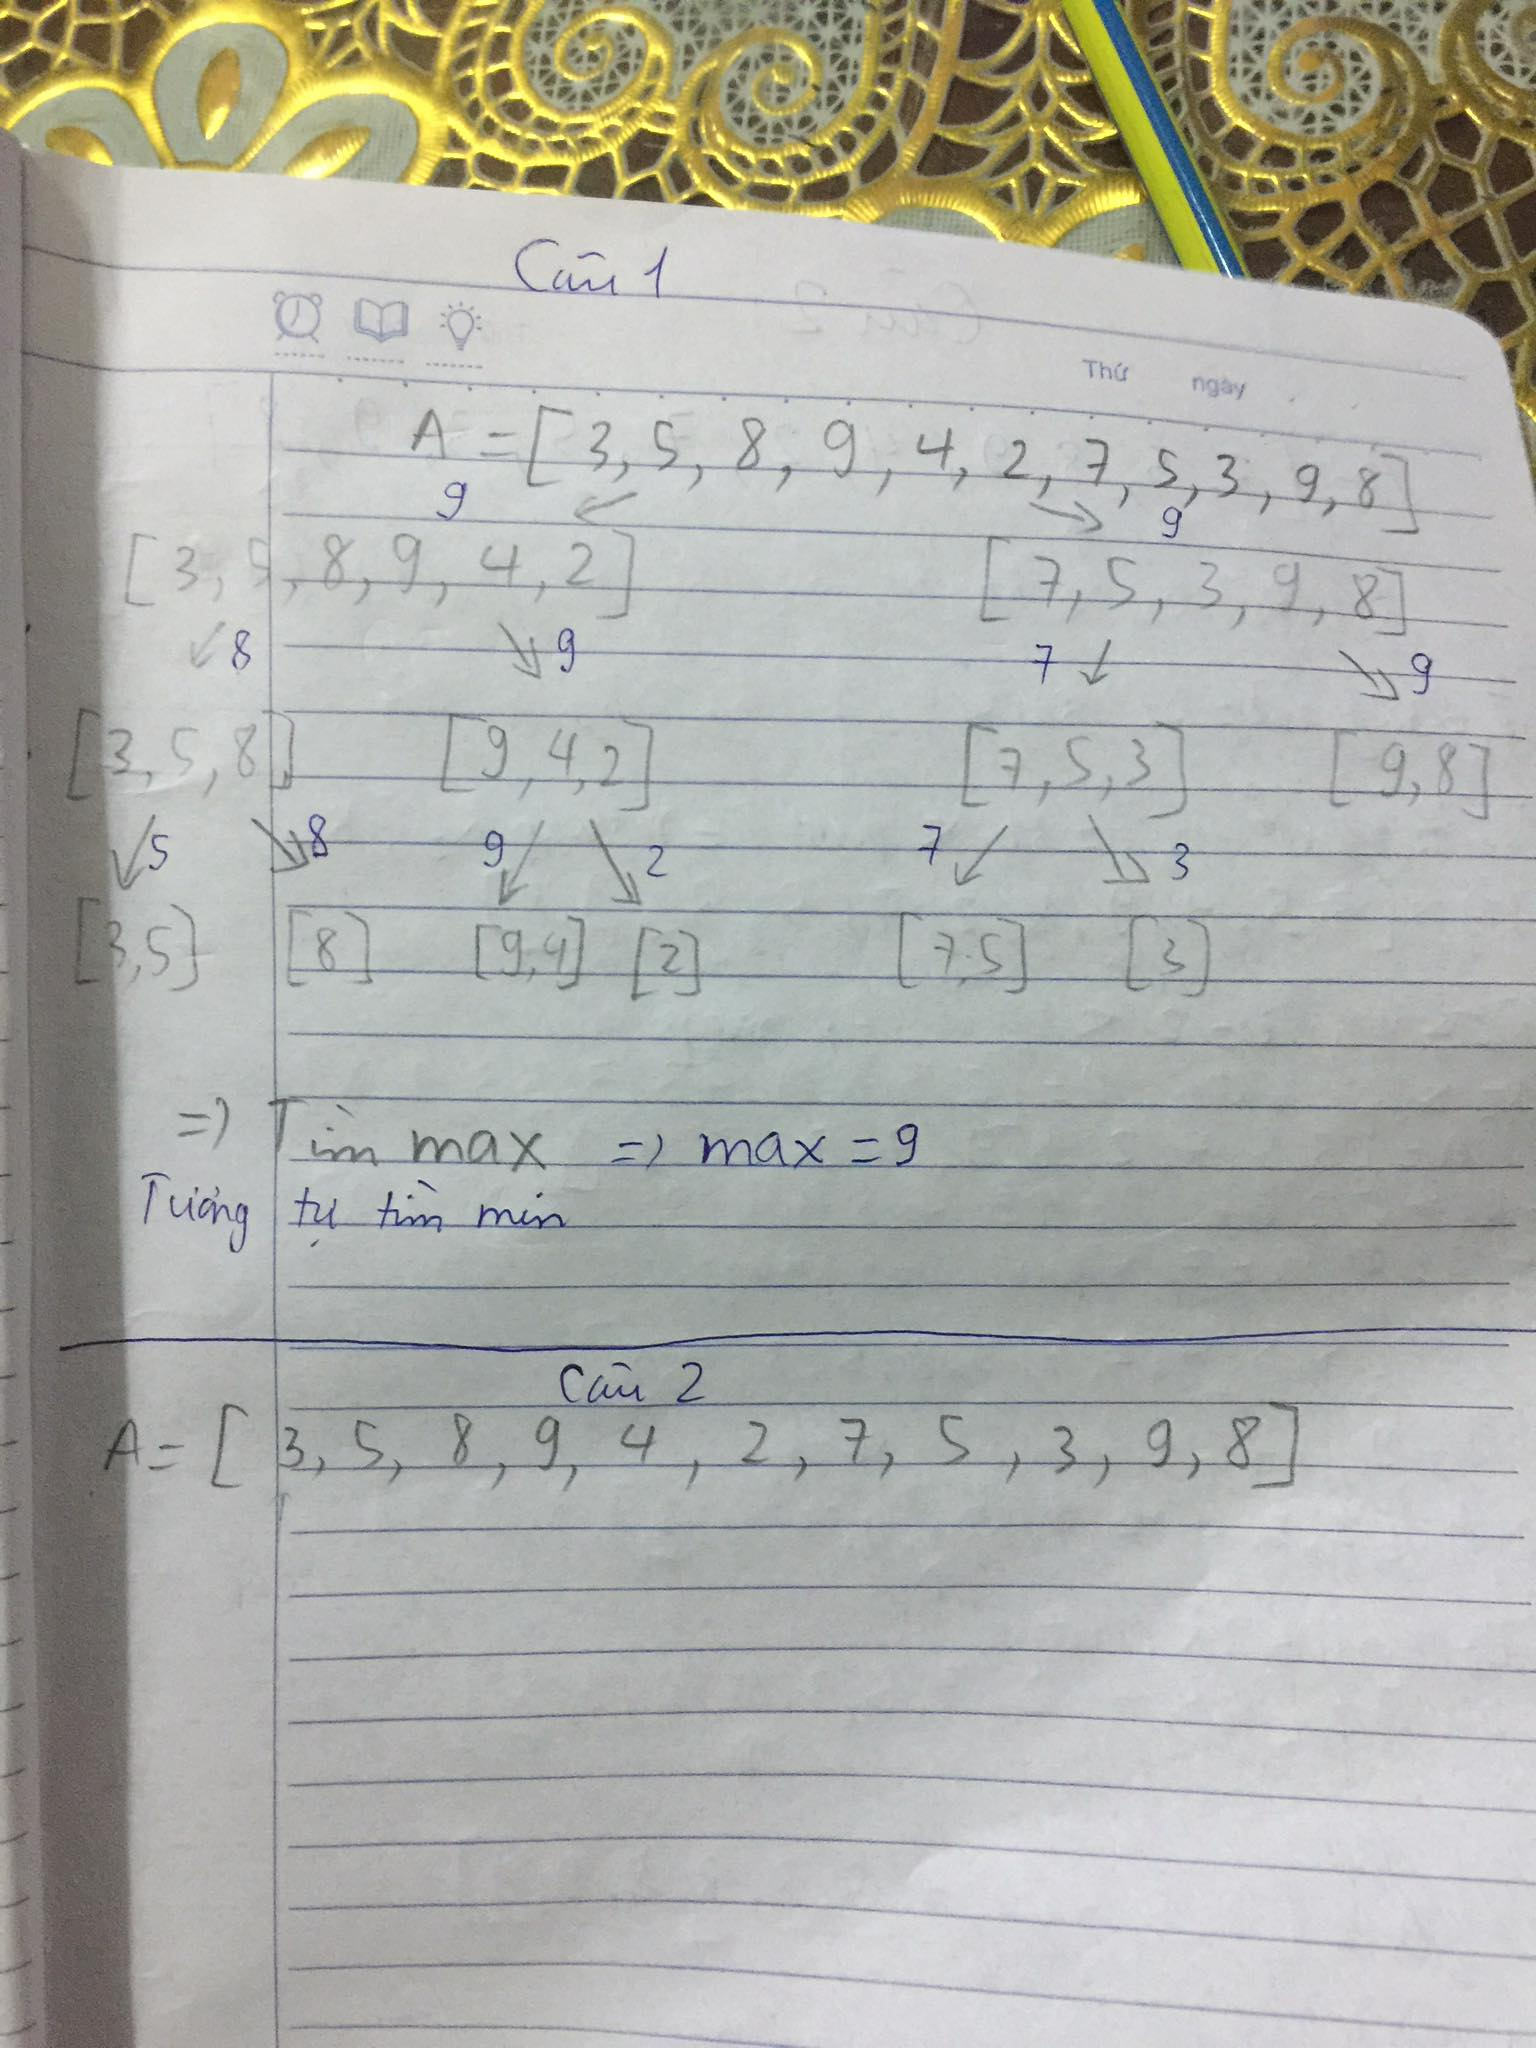 Câu 1
Thứ ngày
A = [3, 5, 8, 9, 4, 2, 7, 5, 3, 9, 8]
9 9
[3, 5, 8, 9, 4, 2] [7, 5, 3, 9, 8]
8 9 7 9
[3, 5, 8] [9, 4, 2] [7, 5, 3] [9, 8]
5 8 9 2 7 3
[3,5] [8] [9,4] [2] [7,5] [3]
=> Tìm max => max = 9
Tương tự tìm min
Câu 2
A = [3, 5, 8, 9, 4, 2, 7, 5, 3, 9, 8]